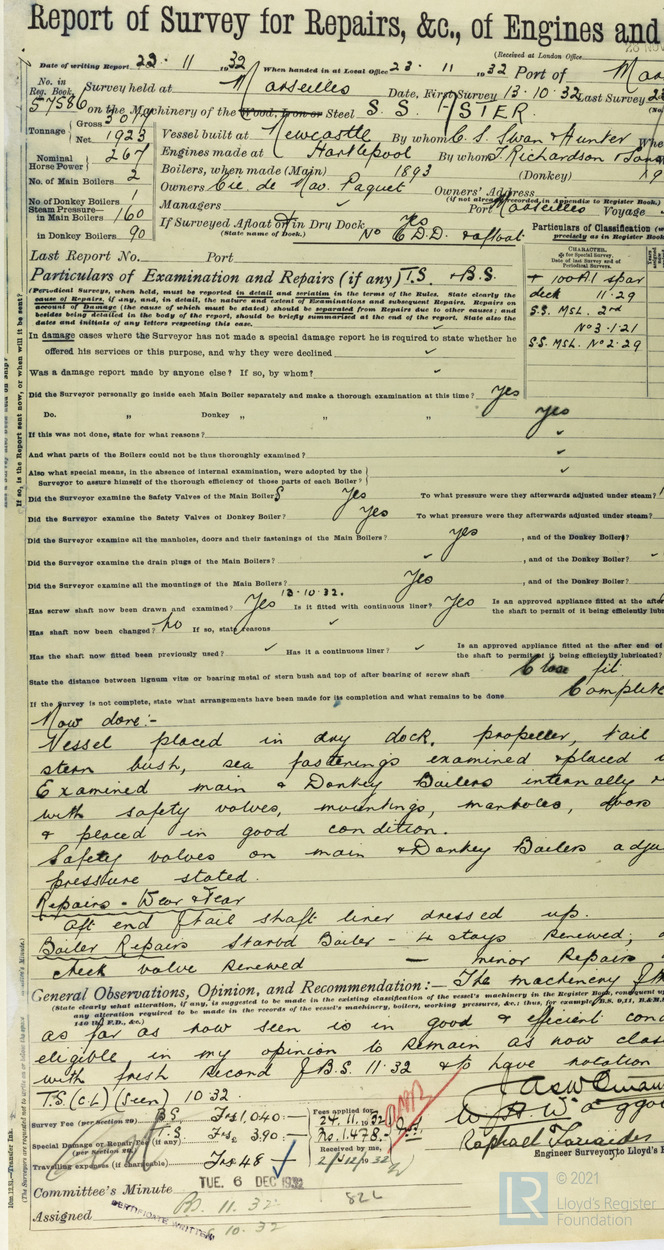 Report of Survey for Repairs, &c., of Engines and
(Received at London Office
Date of writing Report 22. 11 1932 When handed in at Local Office 23. 11 1932 Port of
No. in Reg. Book. Survey held at Marseilles Date, First Survey 13.10.32 Last Survey
57586 on the Machinery of the Wood, Iron or Steel S S
Tonnage { Gross
Net 1923
Vessel built at Newcastle By whom C. S. Swan & Hunter
Nominal Horse Power } 267
Engines made at Hartlepool By whom T. Richardson & Sons
No. of Main Boilers 2
Boilers, when made (Main) 1893 (Donkey)
No. of Donkey Boilers 1
Owners Cie. de Nav. Paquet Owners' Address
(if not already recorded in Appendix to Register Book.)
Steam Pressure— in Main Boilers 160
Managers Port Marseilles Voyage
in Donkey Boilers 90
If Surveyed Afloat or in Dry Dock Yes
(State name of Dock.) No 6 D.D. & afloat
Particulars of Classification
precisely as in Register Book
Last Report No. Port
CHARACTER.
Particulars of Examination and Repairs (if any) T.S. & B.S.
+ 100A1 spar
deck 11.29
S.S. MSL. 2nd
No 3-1-21
S.S. MSL. No 2-29
(Periodical Surveys, when held, must be reported in detail and seriatim in the terms of the Rules. State clearly the
cause of Repairs, if any, and, in detail, the nature and extent of Examinations and subsequent Repairs. Repairs on
account of Damage (the cause of which must be stated) should be separated from Repairs due to other causes; and
besides being detailed in the body of the report, should be briefly summarised at the end of the report. State also the
dates and initials of any letters respecting this case.
In damage cases where the Surveyor has not made a special damage report he is required to state whether he
offered his services for this purpose, and why they were declined
Was a damage report made by anyone else? If so, by whom?
Did the Surveyor personally go inside each Main Boiler separately and make a thorough examination at this time? Yes
Do. „ Donkey „ „ „ Yes
If this was not done, state for what reasons?
And what parts of the Boilers could not be thus thoroughly examined?
Also what special means, in the absence of internal examination, were adopted by the
Surveyor to assure himself of the thorough efficiency of those parts of each Boiler?
Did the Surveyor examine the Safety Valves of the Main Boilers Yes To what pressure were they afterwards adjusted under steam?
Did the Surveyor examine the Safety Valves of Donkey Boiler? Yes To what pressure were they afterwards adjusted under steam?
Did the Surveyor examine all the manholes, doors and their fastenings of the Main Boilers? Yes , and of the Donkey Boiler?
Did the Surveyor examine the drain plugs of the Main Boilers? , and of the Donkey Boiler?
Did the Surveyor examine all the mountings of the Main Boilers? Yes , and of the Donkey Boiler?
13.10.32.
Has screw shaft now been drawn and examined? Yes Is it fitted with continuous liner? Yes Is an approved appliance fitted at the
the shaft to permit of it being efficiently
Has shaft now been changed? No If so, state reasons
Has the shaft now fitted been previously used? Has it a continuous liner? Is an approved appliance fitted at the after end of
the shaft to permit of it being efficiently lubricated?
State the distance between lignum vitæ or bearing metal of stern bush and top of after bearing of screw shaft Close fit
If the Survey is not complete, state what arrangements have been made for its completion and what remains to be done Complete
Now done:-
Vessel placed in dry dock, propeller, tail
stern bush, sea fastenings examined & placed
Examined main & Donkey Boilers internally
with safety valves, mountings, manholes, doors
& placed in good condition.
Safety valves on main & Donkey Boilers
pressure stated.
Repairs - Wear & Tear
Aft end of tail shaft liner dressed up.
Boiler Repairs Starbd Boiler - 4 stays renewed,
check valve renewed — minor Repairs
General Observations, Opinion, and Recommendation:— The machinery of
(State clearly what alteration, if any, is suggested to be made in the existing classification of the vessel's machinery in the Register Book,
any alteration required to be made in the records of the vessel's machinery, boilers, working pressures, &c.; thus, for example, B.S. 9,11,
140 lb., F.D., &c.)
as far as now seen is in good & efficient
eligible in my opinion to remain as now
with fresh record of B.S. 11.32 & to have notation
T.S. (C.L) (seen) 10.32.
Survey Fee (per Section 29) B.S. Frs 1,040:
T.S. Frs 390:
Special Damage or Repair Fee (if any)
(per Section 29)
Travelling expenses (if chargeable) Frs 48
Fees applied for
24. 11. 32
1.478.
Received by me,
Engineer Surveyor to Lloyd's
Committee's Minute TUE. 6 DEC 1932
Assigned
CERTIFICATE WRITTEN
© 2021
LR Lloyd's Register
Foundation